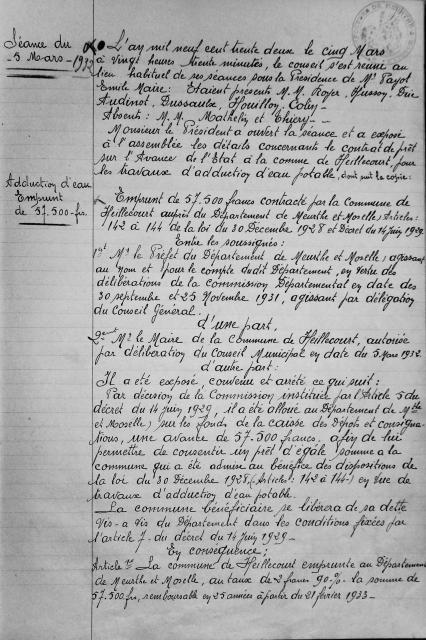 Séance du
5 Mars 1932
L'an mil neuf cent trente deux le cinq Mars
à vingt heures trente minutes, le conseil s'est réuni au
lieu habituel de ses séances sous la Présidence de Mr Payot
Emile Maire: Etaient présents M.M. Royer, Husson,
Audinot, Dussaulx, Houillon, Coley -
Absents: M.M. Mathelin et Thiéry -
Monsieur le Président a ouvert la séance et a exposé
à l'assemblée les détails concernant le contrat de prêt
sur l'Avance de l'Etat à la comme de Heillecourt, pour
les travaux d'adduction d'eau potable, dont suit la copie:
Adduction d'eau
Emprunt
de 57.500 frs.
Emprunt de 57.500 francs contracté par la Commune de
Heillecourt auprès du Département de Meurthe et Moselle, Articles:
142 à 144 de la loi du 30 Décembre 1928 et Décret du 14 Juin 1929.
Entre les soussignés:
1ent Mr le Préfet du Département de Meurthe et Moselle, agissant
au nom et pour le compte dudit Département, en vertu des
délibérations de la commission Départemental en date des
30 septembre et 25 Novembre 1931, agissant par délégation
du Conseil Général:
d'une part,
2ent Mr le Maire de la Commune de Heillecourt, autorisé
par délibération du Conseil Municipal en date du 5 Mars 1932.
d'autre part:
Il a été exposé, convenu et arrêté ce qui suit:
Par décision de la Commission instituée par l'Article 5 du
décret du 14 Juin 1929, il a été alloué au Département de Mthe
et Moselle, sur les fonds de la caisse des Dépôts et consigna-
tions, une avance de 57.500 francs, afin de lui
permettre de consentir un prêt d'égale somme à la
commune qui a été admise au bénéfice des dispositions de
la loi du 30 Décembre 1928 (Articles: 142 à 144) en vue de
travaux d'adduction d'eau potable.
- La commune bénéficiaire se libérera de sa dette
vis-à-vis du Département dans les conditions fixées par
l'article 7 du décret du 14 Juin 1929 -
En conséquence;
Article 1er - La commune de Heillecourt emprunte au Département
de Meurthe et Moselle, au taux de 2 francs 90 % la somme de
57.500 frs, remboursable en 25 années à partir du 21 février 1933 -